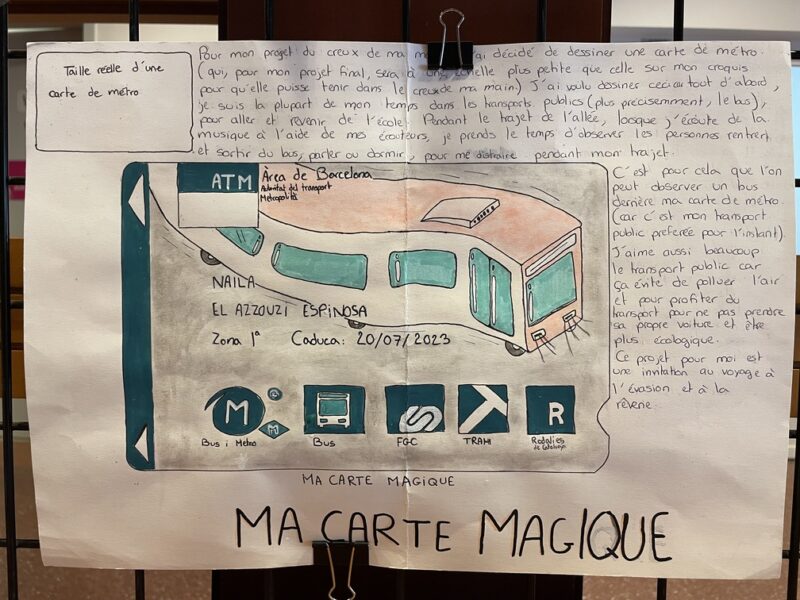 Taille réelle d'une
carte de métro
Pour mon projet du creux de ma décidé de dessiner une carte de métro.
(qui, pour mon projet final, sera à une échelle plus petite que celle sur mon croquis
pour qu'elle puisse tenir dans le creux de ma main) J'ai voulu dessiner ceci car tout d'abord,
je suis la plupart de mon temps dans les transports publics (plus precisemment, le bus),
pour aller et revenir de l'école. Pendant le trajet de l'allée, losque j'écoute de la
musique à l'aide de mes écouteurs, je prends le temps d'observer les personnes rentrer
et sortir du bus, parler ou dormir, pour me distraire pendant mon trajet.
C'est pour cela que l'on
peut observer un bus
derrière ma carte de métro.
(car c'est mon transport
public préferée pour l'instant).
J'aime aussi beaucoup
le transport public car
ça évite de polluer l'air
et pour profiter du
transport pour ne pas prendre
sa propre voiture et être
plus écologique.
Ce projet pour moi est
une invitation au voyage à
l'évasion et à la
rêverie.
ATM
Àrea de Barcelona
Autoritat del transport
Metropolità
NAILA
EL AZZOUZI ESPINOSA
Zona 1ª Caduca: 20/07/2023
M M R
Bus i Metro Bus FGC TRAM Rodalies
de Catalunya
MA CARTE MAGIQUE
MA CARTE MAGIQUE